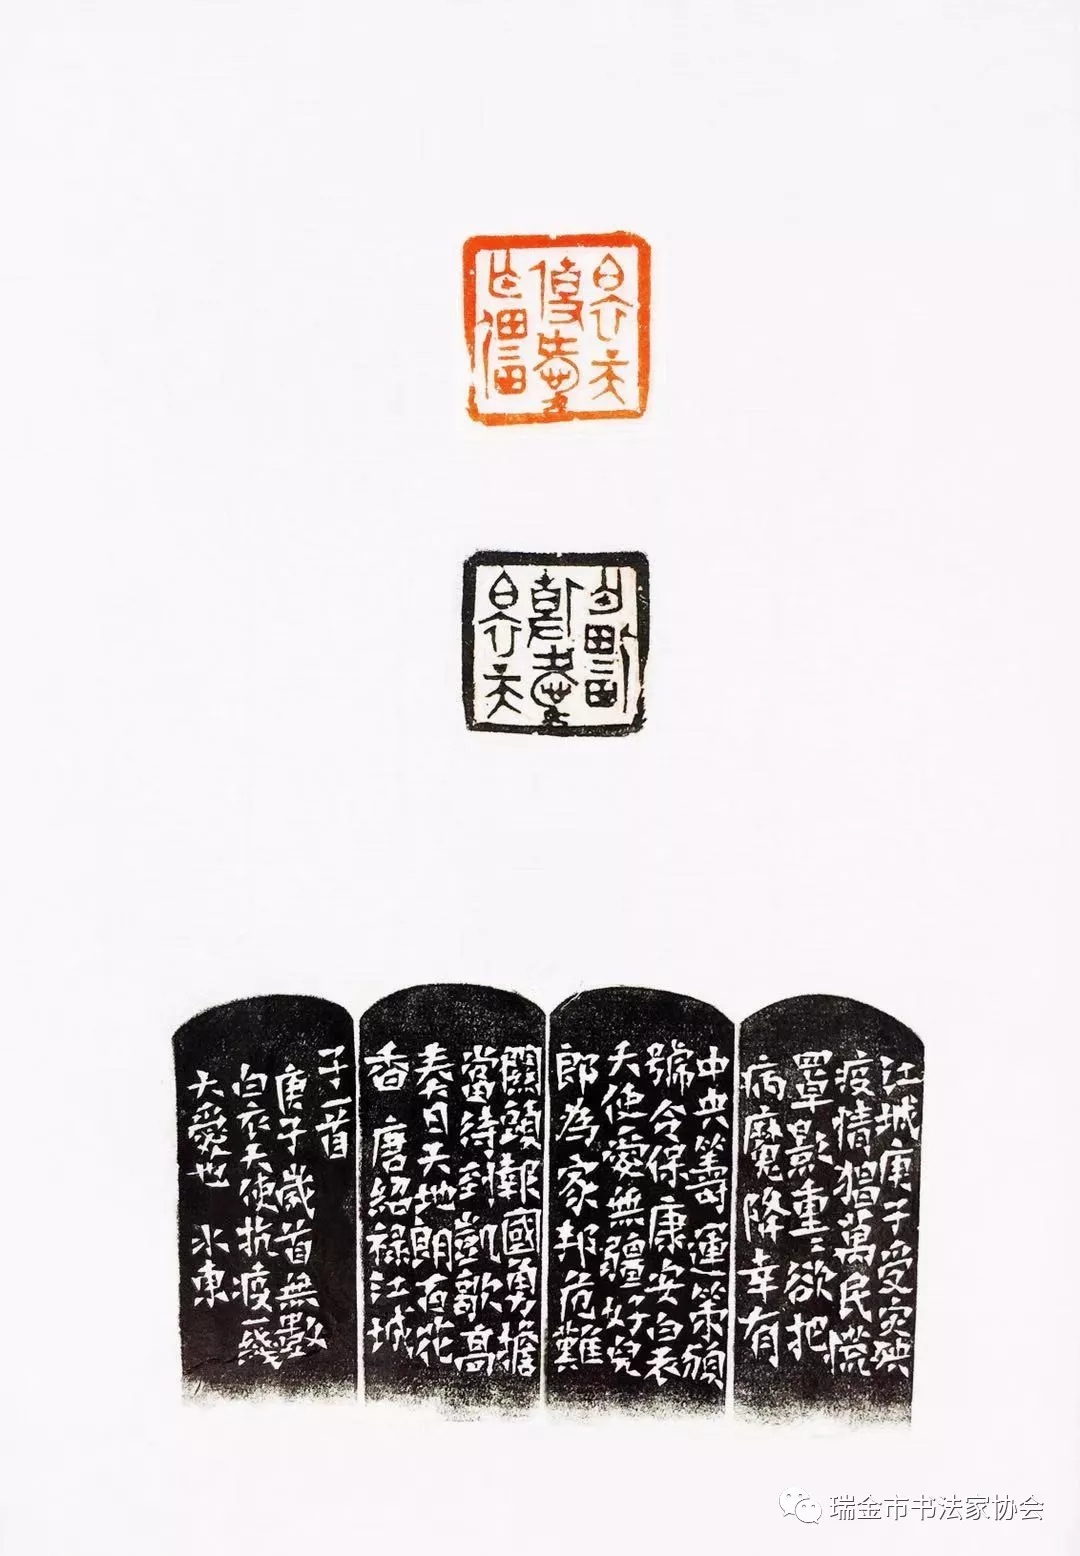 江城庚子受灾殃
疫情猖萬民慌
罩影重〻欲把
病魔降幸有
中央籌運策頒
號令保康安白衣
天使愛無疆好兒
郎為家邦危難
關頭報國勇擔
當待到凱歌高
奏日天地朗百花
香 唐紹祿江城
子一首
庚子歲首無數
白衣天使抗疫一綫
大愛也 水東
瑞金市书法家协会